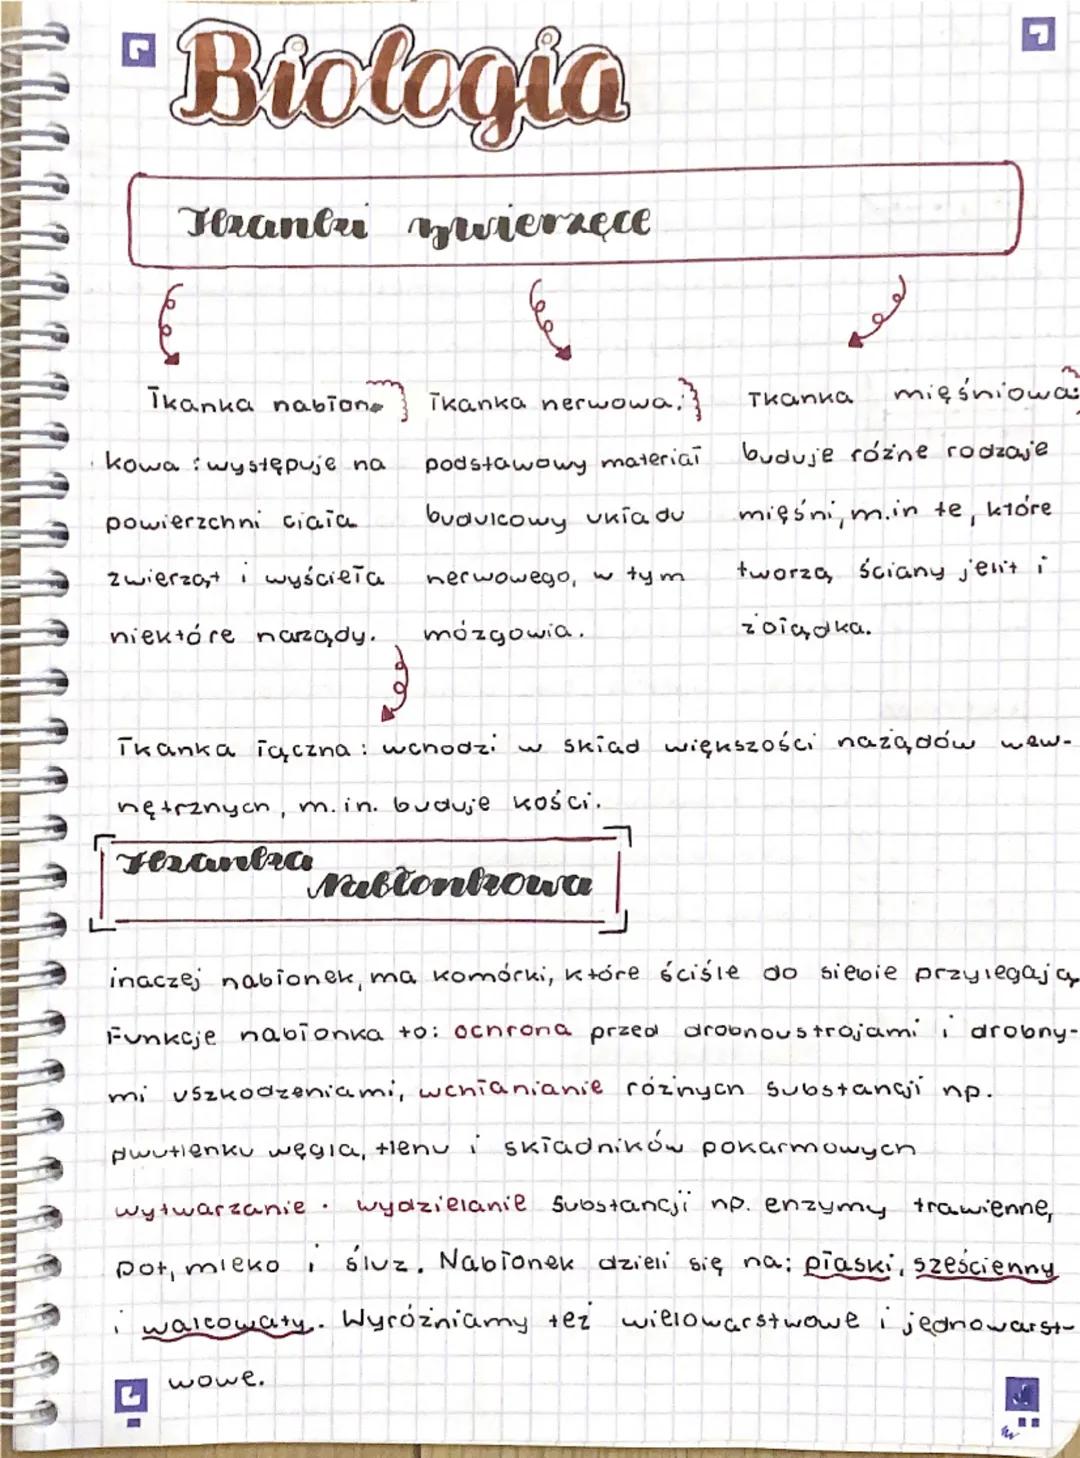 Biologia
Tkanki zwierzęce
Tkanka nabłon-
kowa : występuje na
powierzchni ciała
zwierząt i wyścieła
niektóre narządy.
Tkanka nerwowa:
podstawowy materiał
budulcowy układu
nerwowego, w tym
mózgowia.
Tkanka mięśniowa:
buduje różne rodzaje
mięśni, m.in te, które
tworzą ściany jelit i
żołądka.
Tkanka łączna : wchodzi w skład większości nażądów wew-
nętrznych, m.in. buduje kości.
Tkanka
Nabłonkowa
inaczej nabłonek, ma komórki, które ściśle do siebie przylegają
Funkcje nabłonka to: ochrona przed drobnoustrojami i drobny-
mi uszkodzeniami, wchłanianie różnych substancji np.
dwutlenku węgla, tlenu i składników pokarmowych
wytwarzanie · wydzielanie substancji np. enzymy trawienne,
pot, mleko i śluz. Nabłonek dzieli się na: płaski, sześcienny
i walcowaty. Wyróżniamy też wielowarstwowe i jednowarst-
wowe.